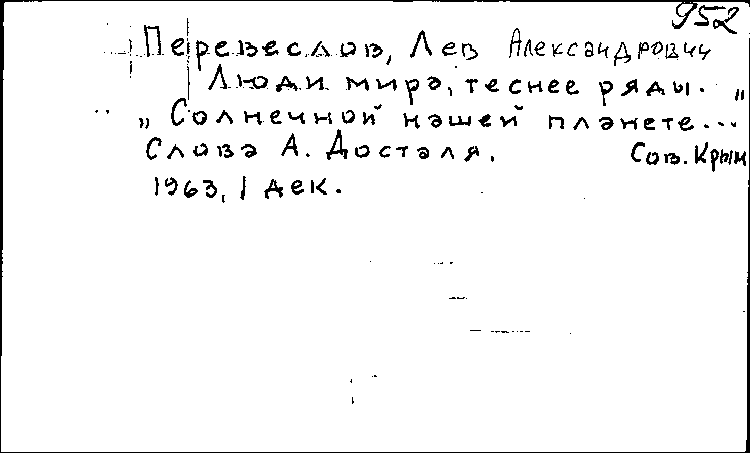 952
Перевеслов, Лев Александрович
Люди мира, теснее ряды. „
„ Солнечной нашей планете...
Слова А. Досталя. Сов. Крым
1963, 1 дек.